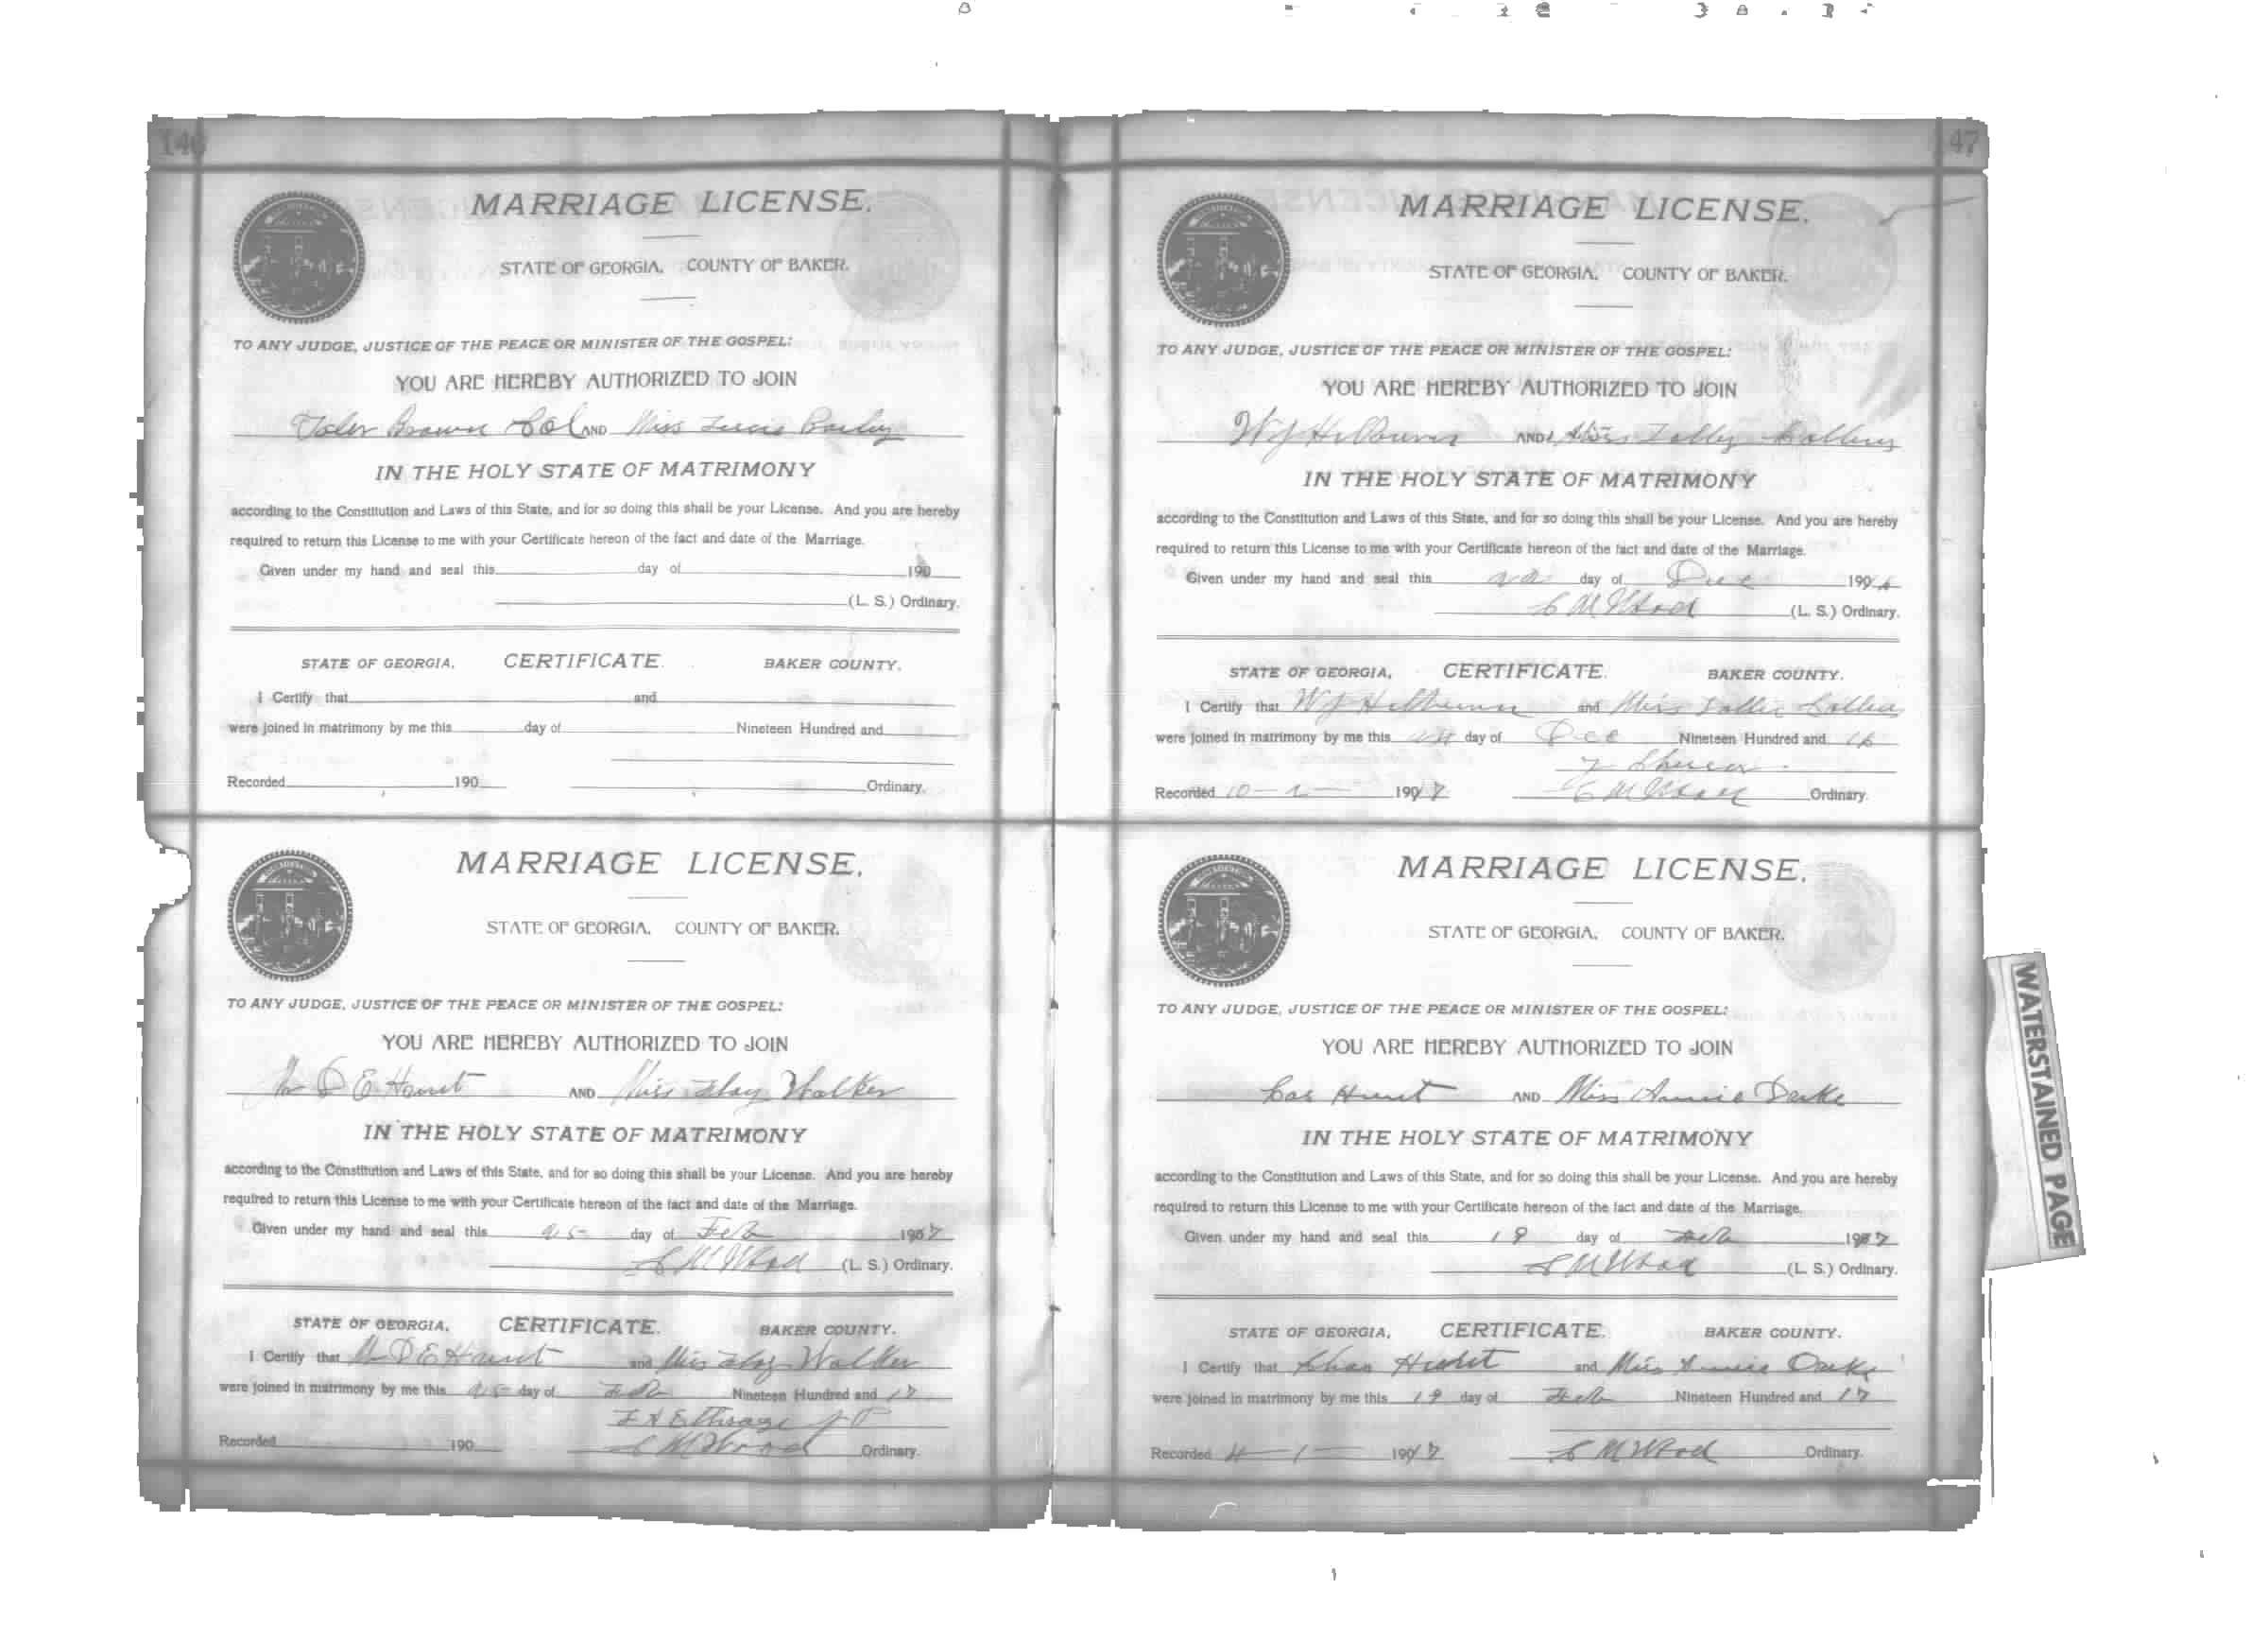 MARRIAGE LICENSE.
STATE OF GEORGIA. COUNTY OF BAKER.
TO ANY JUDGE, JUSTICE OF THE PEACE OR MINISTER OF THE GOSPEL:
YOU ARE HEREBY AUTHORIZED TO JOIN
Brown Col AND Miss
IN THE HOLY STATE OF MATRIMONY
according to the Constitution and Laws of this State, and for so doing this shall be your License. And you are hereby
required to return this License to me with your Certificate hereon of the fact and date of the Marriage.
Given under my hand and seal this day of 190
(L. S.) Ordinary.
STATE OF GEORGIA, CERTIFICATE. BAKER COUNTY.
I Certify that and
were joined in matrimony by me this day of Nineteen Hundred and
Recorded 190 Ordinary.
MARRIAGE LICENSE.
STATE OF GEORGIA. COUNTY OF BAKER.
TO ANY JUDGE, JUSTICE OF THE PEACE OR MINISTER OF THE GOSPEL:
YOU ARE HEREBY AUTHORIZED TO JOIN
D E Hount AND Miss Walker
IN THE HOLY STATE OF MATRIMONY
according to the Constitution and Laws of this State, and for so doing this shall be your License. And you are hereby
required to return this License to me with your Certificate hereon of the fact and date of the Marriage.
Given under my hand and seal this 25 day of Feb 1917
C M Wood (L. S.) Ordinary.
STATE OF GEORGIA, CERTIFICATE. BAKER COUNTY.
I Certify that D E Hount and Miss Walker
were joined in matrimony by me this 25 day of Feb Nineteen Hundred and 17
J P
Recorded 190 C M Wood Ordinary.
47
MARRIAGE LICENSE.
STATE OF GEORGIA. COUNTY OF BAKER.
TO ANY JUDGE, JUSTICE OF THE PEACE OR MINISTER OF THE GOSPEL:
YOU ARE HEREBY AUTHORIZED TO JOIN
W J AND Miss
IN THE HOLY STATE OF MATRIMONY
according to the Constitution and Laws of this State, and for so doing this shall be your License. And you are hereby
required to return this License to me with your Certificate hereon of the fact and date of the Marriage.
Given under my hand and seal this day of Dec 1916
C M Wood (L. S.) Ordinary.
STATE OF GEORGIA, CERTIFICATE. BAKER COUNTY.
I Certify that W J and Miss
were joined in matrimony by me this day of Dec Nineteen Hundred and 16
Recorded 1917 C M Wood Ordinary.
MARRIAGE LICENSE.
STATE OF GEORGIA. COUNTY OF BAKER.
TO ANY JUDGE, JUSTICE OF THE PEACE OR MINISTER OF THE GOSPEL:
YOU ARE HEREBY AUTHORIZED TO JOIN
Hunt AND Miss Annie
IN THE HOLY STATE OF MATRIMONY
according to the Constitution and Laws of this State, and for so doing this shall be your License. And you are hereby
required to return this License to me with your Certificate hereon of the fact and date of the Marriage.
Given under my hand and seal this 19 day of Feb 1917
C M Wood (L. S.) Ordinary.
STATE OF GEORGIA, CERTIFICATE. BAKER COUNTY.
I Certify that Chas and Miss Annie
were joined in matrimony by me this 19 day of Feb Nineteen Hundred and 17
Recorded 4 - 1 - 1917 C M Wood Ordinary.
WATERSTAINED PAGE